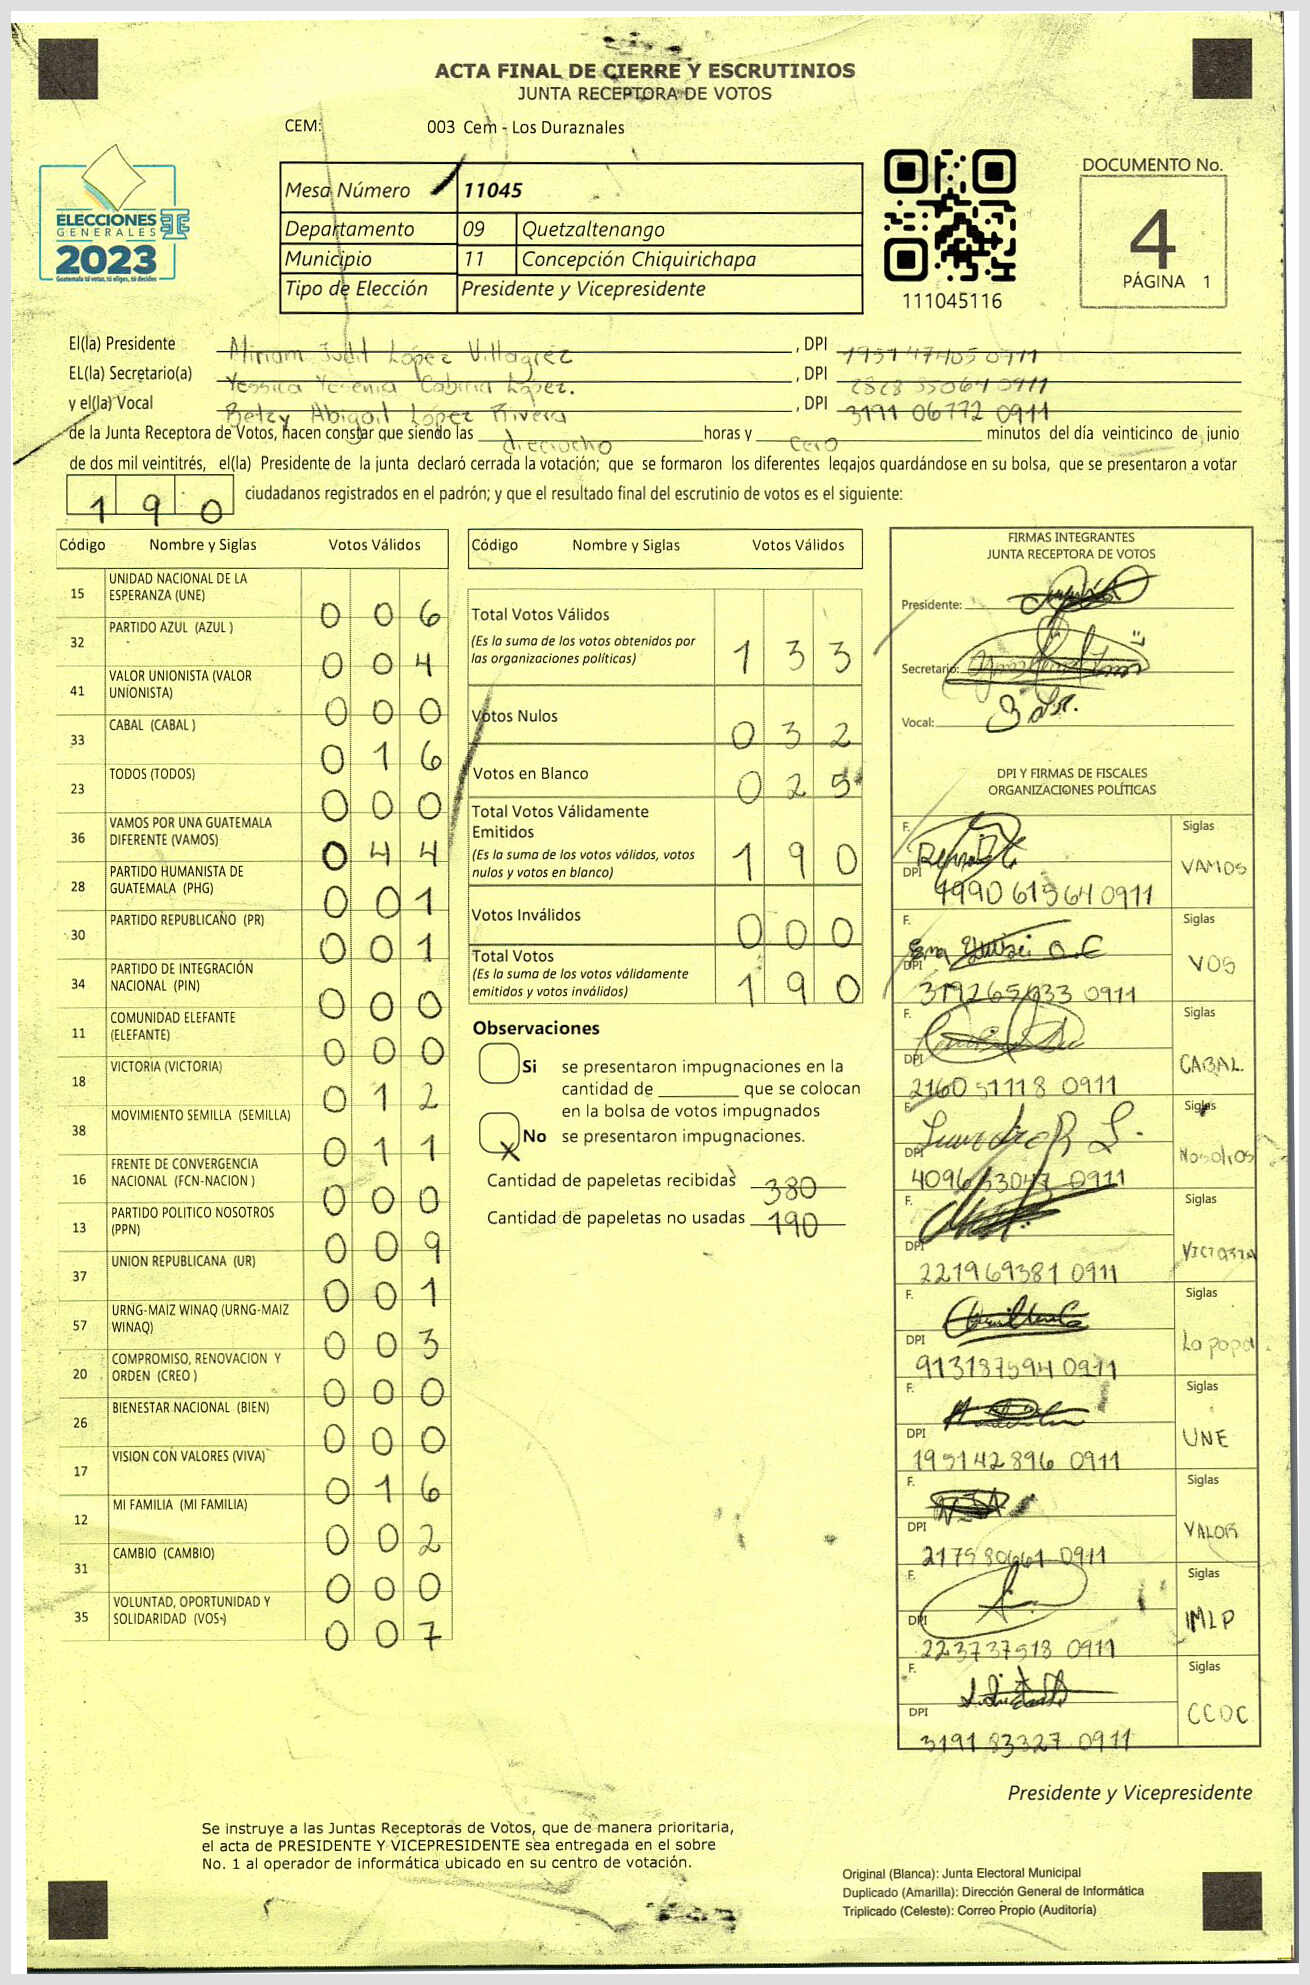 ACTA FINAL DE CIERRE Y ESCRUTINIOS
JUNTA RECEPTORA DE VOTOS
CEM: 003 Cem - Los Duraznales
ELECCIONES
GENERALES
2023
Guatemala tú votas, tú eliges, tú decides
Mesa Número 11045
Departamento 09 Quetzaltenango
Municipio 11 Concepción Chiquirichapa
Tipo de Elección Presidente y Vicepresidente
111045116
DOCUMENTO No.
4
PÁGINA 1
El(la) Presidente Miriam Judit López Villagrez, DPI 1931 47405 0911
EL(la) Secretario(a) Yessica Yesenia Cabrera López., DPI 2828 35064 0911
y el(la) Vocal Betzy Abigail López Rivera, DPI 3191 06772 0911
de la Junta Receptora de Votos, hacen constar que siendo las dieciocho horas y cero minutos del día veinticinco de junio
de dos mil veintitrés, el(la) Presidente de la junta declaró cerrada la votación; que se formaron los diferentes legajos quardándose en su bolsa, que se presentaron a votar
190 ciudadanos registrados en el padrón; y que el resultado final del escrutinio de votos es el siguiente:
Código Nombre y Siglas Votos Válidos
15 UNIDAD NACIONAL DE LA ESPERANZA (UNE) 0 0 6
32 PARTIDO AZUL (AZUL ) 0 0 4
41 VALOR UNIONISTA (VALOR UNIONISTA) 0 0 0
33 CABAL (CABAL ) 0 1 6
23 TODOS (TODOS) 0 0 0
36 VAMOS POR UNA GUATEMALA DIFERENTE (VAMOS) 0 4 4
28 PARTIDO HUMANISTA DE GUATEMALA (PHG) 0 0 1
30 PARTIDO REPUBLICANO (PR) 0 0 1
34 PARTIDO DE INTEGRACIÓN NACIONAL (PIN) 0 0 0
11 COMUNIDAD ELEFANTE (ELEFANTE) 0 0 0
18 VICTORIA (VICTORIA) 0 1 2
38 MOVIMIENTO SEMILLA (SEMILLA) 0 1 1
16 FRENTE DE CONVERGENCIA NACIONAL (FCN-NACION ) 0 0 0
13 PARTIDO POLITICO NOSOTROS (PPN) 0 0 9
37 UNION REPUBLICANA (UR) 0 0 1
57 URNG-MAIZ WINAQ (URNG-MAIZ WINAQ) 0 0 3
20 COMPROMISO, RENOVACION Y ORDEN (CREO ) 0 0 0
26 BIENESTAR NACIONAL (BIEN) 0 0 0
17 VISION CON VALORES (VIVA) 0 1 6
12 MI FAMILIA (MI FAMILIA) 0 0 2
31 CAMBIO (CAMBIO) 0 0 0
35 VOLUNTAD, OPORTUNIDAD Y SOLIDARIDAD (VOS-) 0 0 7
Código Nombre y Siglas Votos Válidos
Total Votos Válidos 1 3 3
(Es la suma de los votos obtenidos por
las organizaciones políticas)
Votos Nulos 0 3 2
Votos en Blanco 0 2 5
Total Votos Válidamente
Emitidos
(Es la suma de los votos válidos, votos
nulos y votos en blanco) 1 9 0
Votos Inválidos 0 0 0
Total Votos
(Es la suma de los votos válidamente
emitidos y votos inválidos) 1 9 0
Observaciones
Si se presentaron impugnaciones en la
cantidad de ________ que se colocan
en la bolsa de votos impugnados
X No se presentaron impugnaciones.
Cantidad de papeletas recibidas 380
Cantidad de papeletas no usadas 190
FIRMAS INTEGRANTES
JUNTA RECEPTORA DE VOTOS
Presidente:
Secretario:
Vocal:
DPI Y FIRMAS DE FISCALES
ORGANIZACIONES POLÍTICAS
F. Siglas
DPI 1990 61564 0911 VAMOS
F. Siglas
DPI 319265633 0911 VOS
F. Siglas
DPI 2160 51118 0911 CABAL.
F. Siglas
DPI 4096 53047 0911 Nosotros
F. Siglas
DPI 221969381 0911 VICTORIA
F. Siglas
DPI 913187594 0911 La papa
F. Siglas
DPI 195142896 0911 UNE
F. Siglas
DPI 217580661 0911 VALOR
F. Siglas
DPI 223737513 0911 IMLP
F. Siglas
DPI 3191 83327 0911 CCDC
Presidente y Vicepresidente
Se instruye a las Juntas Receptoras de Votos, que de manera prioritaria,
el acta de PRESIDENTE Y VICEPRESIDENTE sea entregada en el sobre
No. 1 al operador de informática ubicado en su centro de votación.
Original (Blanca): Junta Electoral Municipal
Duplicado (Amarilla): Dirección General de Informática
Triplicado (Celeste): Correo Propio (Auditoría)